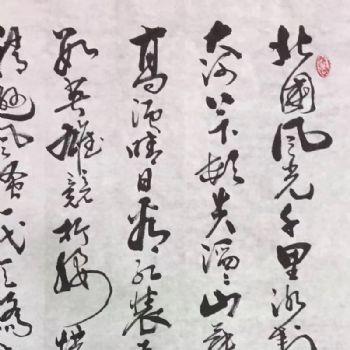 北國风光千里冰封
大河上下頓失滔滔山舞
高須晴日看红装
數英雄競折腰惜
稍逊风骚一代天骄